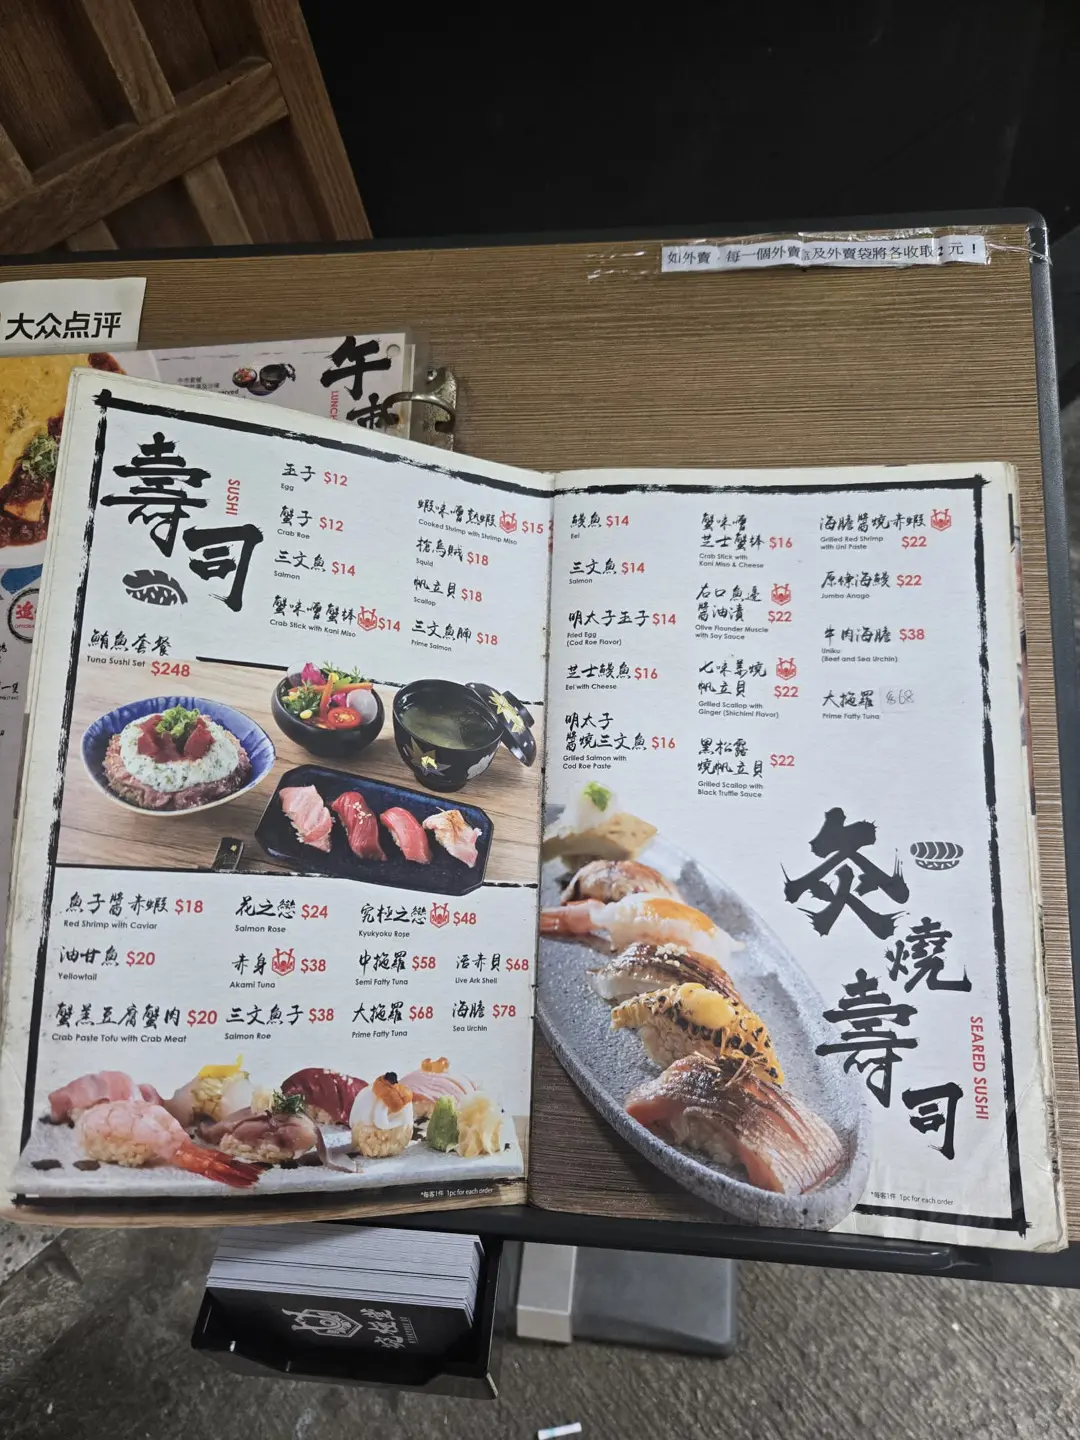 如外賣，每一個外賣盒及外賣袋將各收取2元！
大众点评
午市
LUNCH
壽司
SUSHI
玉子 $12
Egg
蟹子 $12
Crab Roe
三文魚 $14
Salmon
蟹味噌蟹棒 $14
Crab Stick with Kani Miso
蝦味噌熟蝦 $15
Cooked Shrimp with Shrimp Miso
槍烏賊 $18
Squid
帆立貝 $18
Scallop
三文魚腩 $18
Prime Salmon
鮪魚套餐
Tuna Sushi Set $248
魚子醬赤蝦 $18
Red Shrimp with Caviar
花之戀 $24
Salmon Rose
究極之戀 $48
Kyukyoku Rose
油甘魚 $20
Yellowtail
赤身 $38
Akami Tuna
中拖羅 $58
Semi Fatty Tuna
活赤貝 $68
Live Ark Shell
蟹羔豆腐蟹肉 $20
Crab Paste Tofu with Crab Meat
三文魚子 $38
Salmon Roe
大拖羅 $68
Prime Fatty Tuna
海膽 $78
Sea Urchin
*每客1件 1pc for each order
鰻魚 $14
Eel
三文魚 $14
Salmon
明太子玉子 $14
Fried Egg
(Cod Roe Flavor)
芝士鰻魚 $16
Eel with Cheese
明太子
醬燒三文魚 $16
Grilled Salmon with
Cod Roe Paste
蟹味噌
芝士蟹棒 $16
Crab Stick with
Kani Miso & Cheese
右口魚邊
醬油漬 $22
Olive Flounder Muscle
with Soy Sauce
七味姜燒
帆立貝 $22
Grilled Scallop with
Ginger (Shichimi Flavor)
黑松露
燒帆立貝 $22
Grilled Scallop with
Black Truffle Sauce
海膽醬燒赤蝦
Grilled Red Shrimp
with Uni Paste $22
原條海鰻 $22
Jumbo Anago
牛肉海膽 $38
Uniku
(Beef and Sea Urchin)
大拖羅 $68
Prime Fatty Tuna
炙燒壽司
SEARED SUSHI
*每客1件 1pc for each order